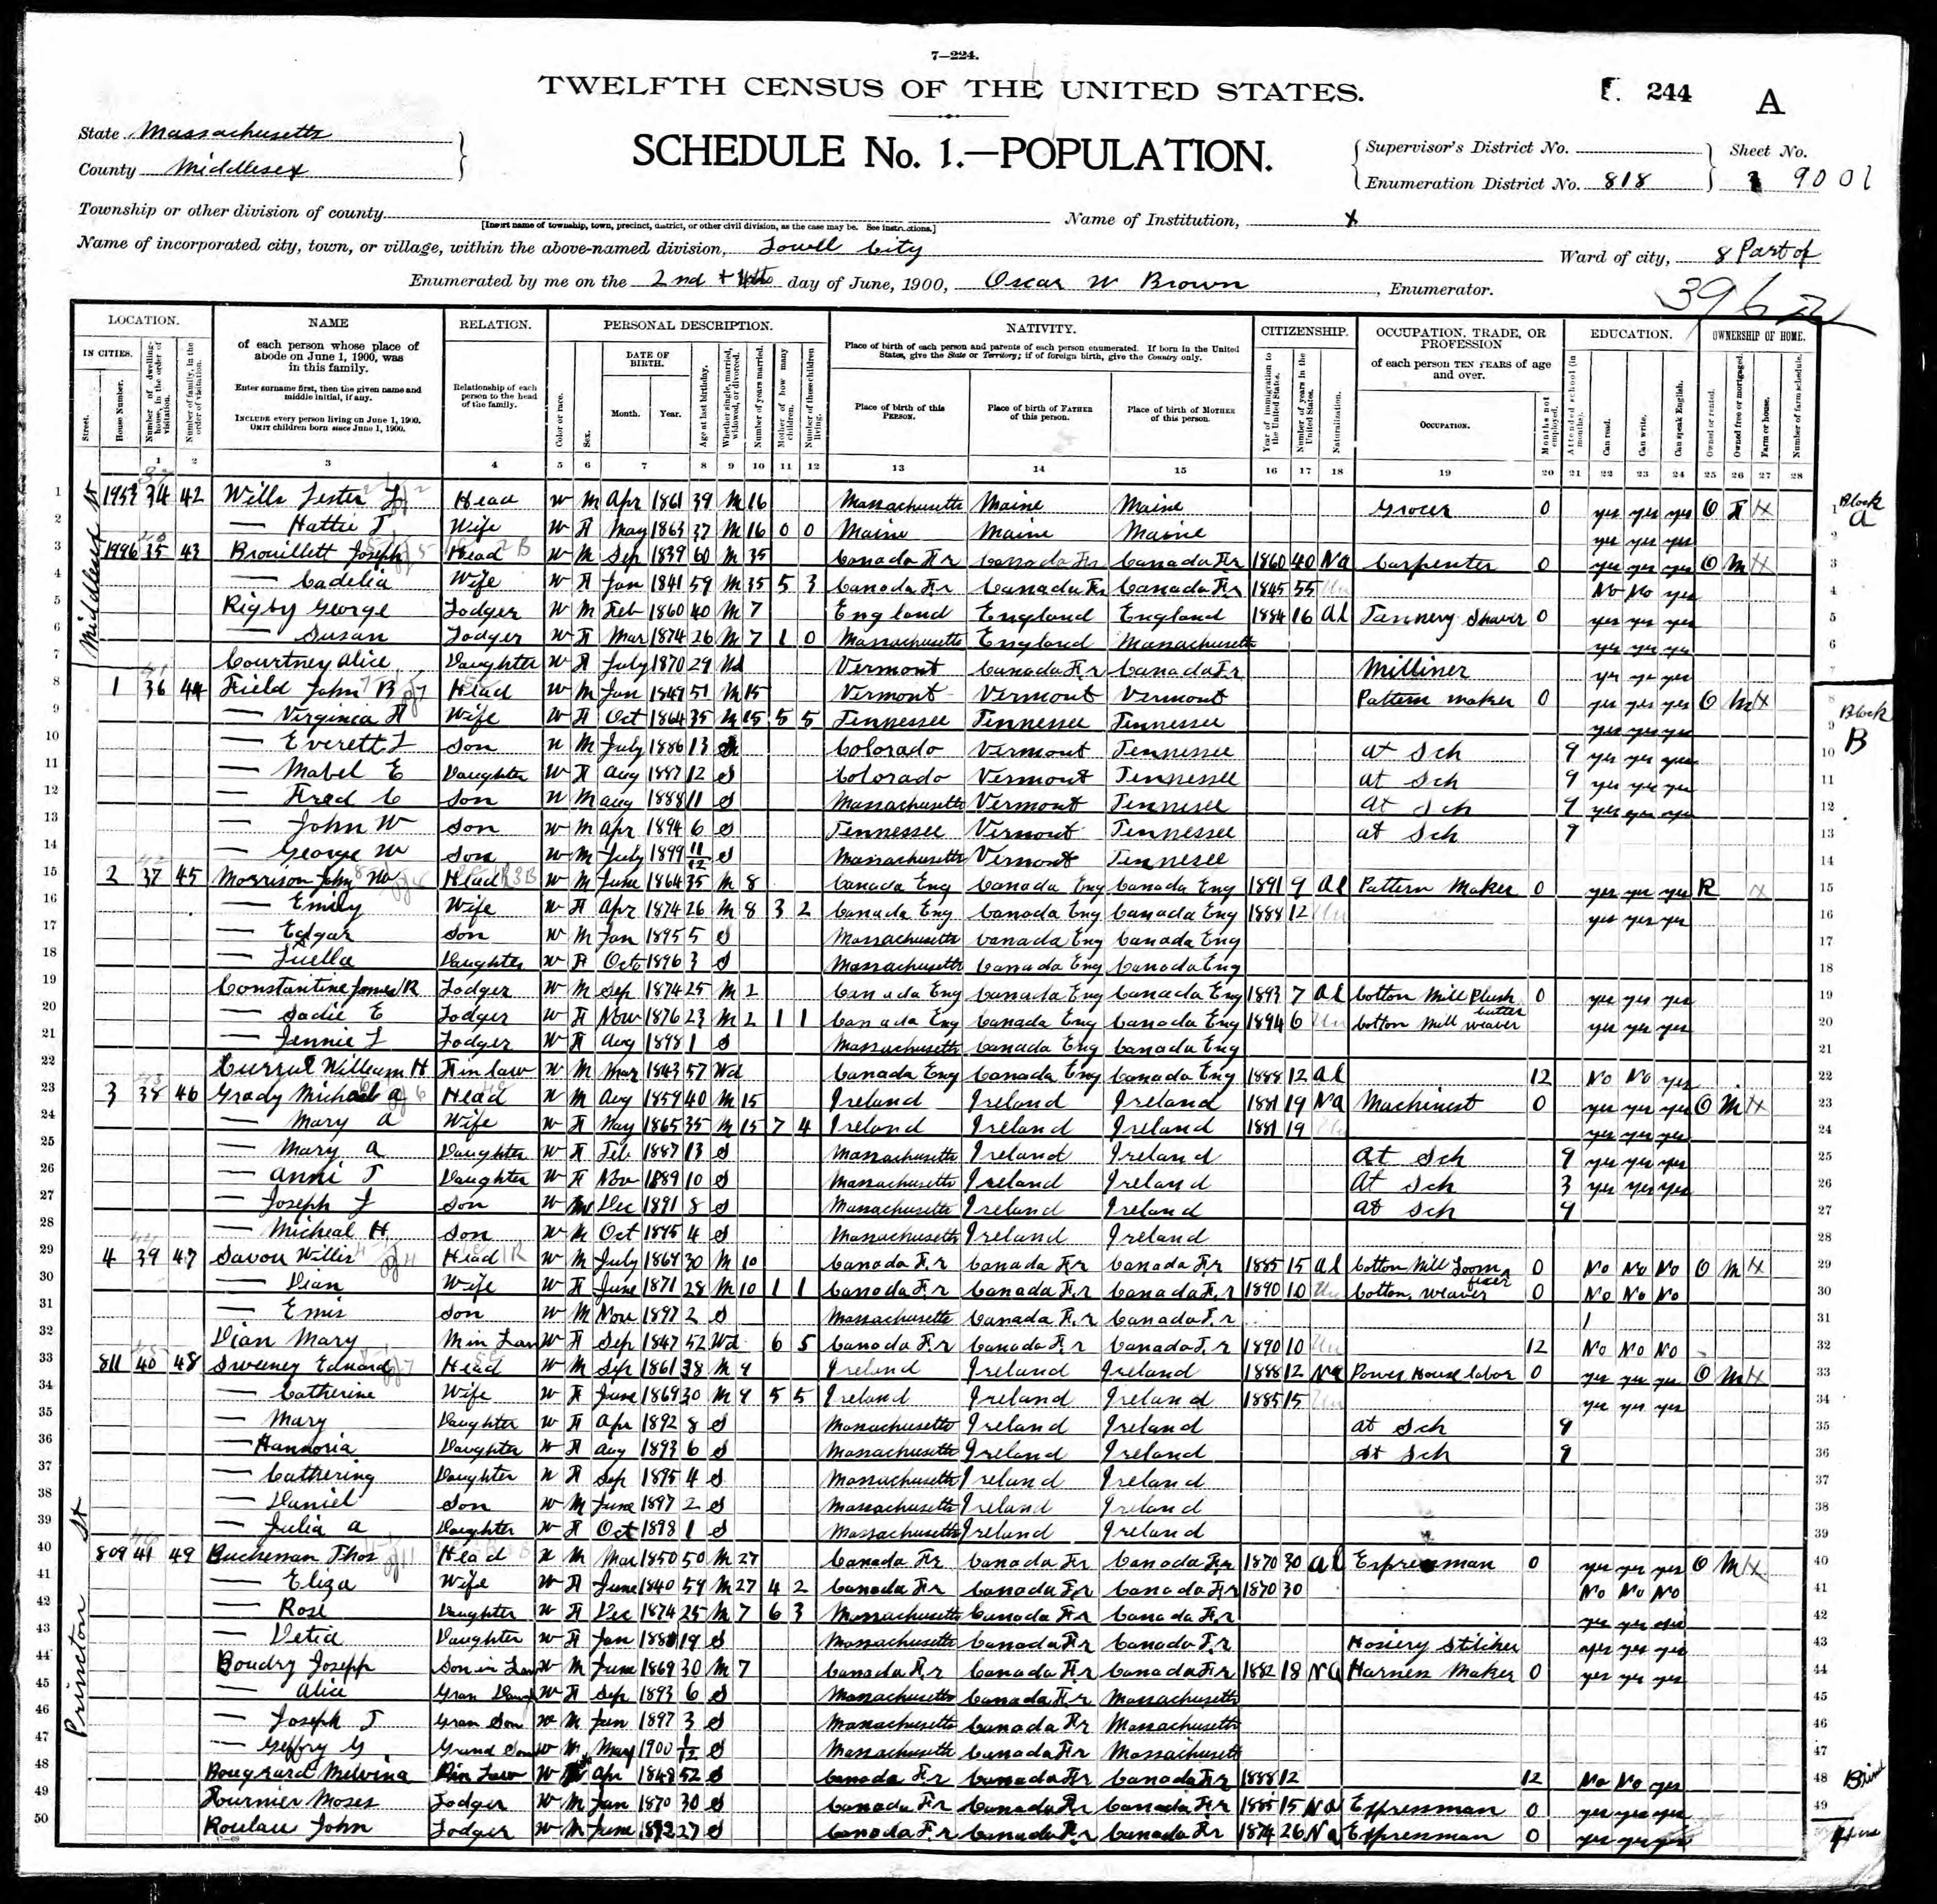 7—224.
TWELFTH CENSUS OF THE UNITED STATES.
244 A
State Massachusetts
County Middlesex
SCHEDULE No. 1.—POPULATION.
Supervisor's District No.
Enumeration District No. 818
Sheet No.
Township or other division of county
[Insert name of township, town, precinct, district, or other civil division, as the case may be. See instructions.]
Name of Institution, x
Name of incorporated city, town, or village, within the above-named division, Lowell City
Ward of city, 8 Part of
Enumerated by me on the 2nd + 4th day of June, 1900, Oscar W Brown, Enumerator.
LOCATION. NAME RELATION. PERSONAL DESCRIPTION. NATIVITY. CITIZENSHIP. OCCUPATION, TRADE, OR PROFESSION EDUCATION. OWNERSHIP OF HOME.
IN CITIES. Street. House Number. Number of dwelling-house, in the order of visitation. Number of family, in the order of visitation.
of each person whose place of abode on June 1, 1900, was in this family.
Enter surname first, then the given name and middle initial, if any.
INCLUDE every person living on June 1, 1900. OMIT children born since June 1, 1900.
Relationship of each person to the head of the family.
Color or race. Sex. DATE OF BIRTH. Month. Year. Age at last birthday. Whether single, married, widowed, or divorced. Number of years married. Mother of how many children. Number of these children living.
Place of birth of each person and parents of each person enumerated. If born in the United States, give the State or Territory; if of foreign birth, give the Country only.
Place of birth of this PERSON. Place of birth of FATHER of this person. Place of birth of MOTHER of this person.
Year of immigration to the United States. Number of years in the United States. Naturalization.
of each person TEN YEARS of age and over.
OCCUPATION. Months not employed.
Attended school (in months). Can read. Can write. Can speak English.
Owned or rented. Owned free or mortgaged. Farm or house. Number of farm schedule.
1 2 3 4 5 6 7 8 9 10 11 12 13 14 15 16 17 18 19 20 21 22 23 24 25 26 27 28
Middlesex St
Block A
1 34 42 Wills Lester Head W M Apr 1861 39 M 16 Massachusetts Maine Maine Grocer 0 yes yes yes O F
2 — Hattie Wife W F May 1863 37 M 16 0 0 Maine Maine Maine yes yes yes
3 1996 35 43 Brouillett Joseph Head W M Sep 1839 60 M 35 Canada Fr Canada Fr Canada Fr 1860 40 Na Carpenter 0 yes yes yes O M
4 — Cadelia Wife W F Jan 1841 59 M 35 5 3 Canada Fr Canada Fr Canada Fr 1845 55 No No yes
5 Rigby George Lodger W M Feb 1860 40 M 7 England England England 1884 16 Al Tannery Shaver 0 yes yes yes
6 — Susan Lodger W F Mar 1874 26 M 7 1 0 Massachusetts England Massachusetts yes yes yes
7 Courtney Alice Daughter W F July 1870 29 Wd Vermont Canada Fr Canada Fr Milliner yes yes yes
8 1 36 44 Field John B Head W M Jan 1849 51 M 15 Vermont Vermont Vermont Pattern maker 0 yes yes yes O M
Block B
9 — Virginia F Wife W F Oct 1864 35 M 15 5 5 Tennessee Tennessee Tennessee yes yes yes
10 — Everett L Son W M July 1886 13 Colorado Vermont Tennessee at Sch 9 yes yes yes
11 — Mabel E Daughter W F Aug 1887 12 S Colorado Vermont Tennessee at Sch 9 yes yes yes
12 — Fred C Son W M Aug 1888 11 S Massachusetts Vermont Tennessee at Sch 9 yes yes yes
13 — John W Son W M Apr 1894 6 S Tennessee Vermont Tennessee at Sch 9
14 — George W Son W M July 1899 11/12 S Massachusetts Vermont Tennesee
15 2 37 45 Morrison John W Head W M June 1864 35 M 8 Canada Eng Canada Eng Canada Eng 1891 9 Al Pattern Maker 0 yes yes yes R
16 — Emily Wife W F Apr 1874 26 M 8 3 2 Canada Eng Canada Eng Canada Eng 1888 12 yes yes yes
17 — Edgar Son W M Jan 1895 5 S Massachusetts Canada Eng Canada Eng
18 — Luella Daughter W F Oct 1896 3 S Massachusetts Canada Eng Canada Eng
19 Constantine James R Lodger W M Sep 1874 25 M 2 Canada Eng Canada Eng Canada Eng 1893 7 Al Cotton Mill Plush cutter 0 yes yes yes
20 — Sadie E Lodger W F Nov 1876 23 M 2 1 1 Canada Eng Canada Eng Canada Eng 1894 6 Cotton Mill weaver yes yes yes
21 — Jennie L Lodger W F Aug 1898 1 S Massachusetts Canada Eng Canada Eng
22 William H F in law W M Mar 1843 57 Wd Canada Eng Canada Eng Canada Eng 1888 12 Al 12 No No yes
23 3 38 46 Grady Michael A Head W M Aug 1859 40 M 15 Ireland Ireland Ireland 1881 19 Na Machinist 0 yes yes yes O M
24 — Mary A Wife W F May 1865 35 M 15 7 4 Ireland Ireland Ireland 1881 19 yes yes yes
25 — Mary A Daughter W F Feb 1887 13 S Massachusetts Ireland Ireland At Sch 9 yes yes yes
26 — Anni T Daughter W F Nov 1889 10 S Massachusetts Ireland Ireland At Sch 3 yes yes yes
27 — Joseph J Son W M Dec 1891 8 S Massachusetts Ireland Ireland at Sch 9
28 — Micheal H Son W M Oct 1895 4 S Massachusetts Ireland Ireland
29 4 39 47 Savou Willis Head W M July 1869 30 M 10 Canada Fr Canada Fr Canada Fr 1885 15 Al Cotton Mill Loom fixer 0 No No No O M
30 — Dian Wife W F June 1871 28 M 10 1 1 Canada Fr Canada Fr Canada Fr 1890 10 Cotton weaver 0 No No No
31 — Emis Son W M Nov 1897 2 S Massachusetts Canada Fr Canada Fr
32 Dian Mary M in Law W F Sep 1847 52 Wd 6 5 Canada Fr Canada Fr Canada Fr 1890 10 12 No No No
33 811 40 48 Sweeney Edward Head W M Sep 1861 38 M 9 Ireland Ireland Ireland 1888 12 Na Power House labor 0 yes yes yes O M
34 — Catherine Wife W F June 1869 30 M 9 5 5 Ireland Ireland Ireland 1885 15 yes yes yes
35 — Mary Daughter W F Apr 1892 8 S Massachusetts Ireland Ireland at Sch 9
36 — Hannoria Daughter W F Aug 1893 6 S Massachusetts Ireland Ireland at Sch 9
37 — Cathering Daughter W F Sep 1895 4 S Massachusetts Ireland Ireland
38 — Daniel Son W M June 1897 2 S Massachusetts Ireland Ireland
39 — Julia A Daughter W F Oct 1898 1 S Massachusetts Ireland Ireland
Princton St
40 809 41 49 Buchenan Thos Head W M Mar 1850 50 M 27 Canada Fr Canada Fr Canada Fr 1870 30 Al Expressman 0 yes yes yes O M
41 — Eliza Wife W F June 1840 59 M 27 4 2 Canada Fr Canada Fr Canada Fr 1870 30 No No No
42 — Rose Daughter W F Dec 1874 25 M 7 6 3 Massachusetts Canada Fr Canada Fr yes yes yes
43 — Daughter W F Jan 19 S Massachusetts Canada Fr Canada Fr Hosiery Stitcher yes yes yes
44 Boudry Joseph Son in Law W M June 1869 30 M 7 Canada Fr Canada Fr Canada Fr 1882 18 Na Harness Maker 0 yes yes yes
45 — Alice Gran Daug W F Sep 1893 6 S Massachusetts Canada Fr Massachusetts
46 — Joseph T Gran Son W M Jan 1897 3 S Massachusetts Canada Fr Massachusetts
47 — Geffry G Grand Son W M May 1900 1/12 S Massachusetts Canada Fr Massachusetts
48 Melvina in Law W Apr 1848 52 S Canada Fr Canada Fr Canada Fr 1888 12 12 No No yes
49 Fournier Moses Lodger W M Jan 1870 30 S Canada Fr Canada Fr Canada Fr 1885 15 Na Expressman 0 yes yes yes
50 Roulau John Lodger W M June 27 S Canada Fr Canada Fr Canada Fr 1874 26 Na Expressman 0 yes yes yes